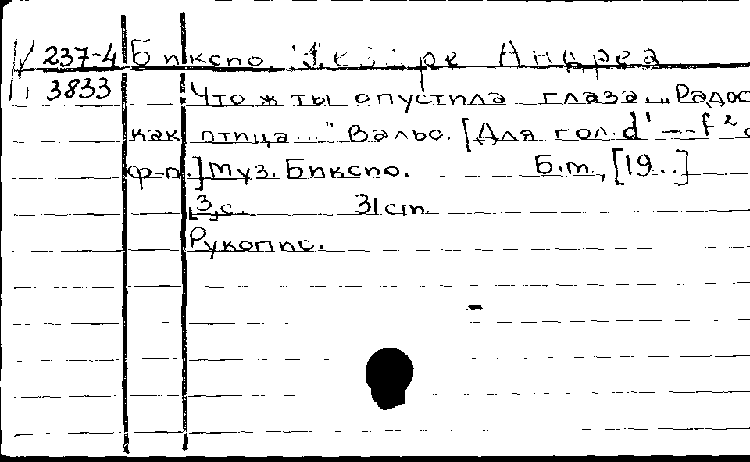 237-4 Биксио. Чезаре Андреа
3833 Что ж ты опустила глаза. „Радос
как птица..." Вальс. [Для гол. d¹ — f² с
ф-п.] Муз. Биксио. Б.м., [19..]
[3] с. 31 cm.
Рукопис.